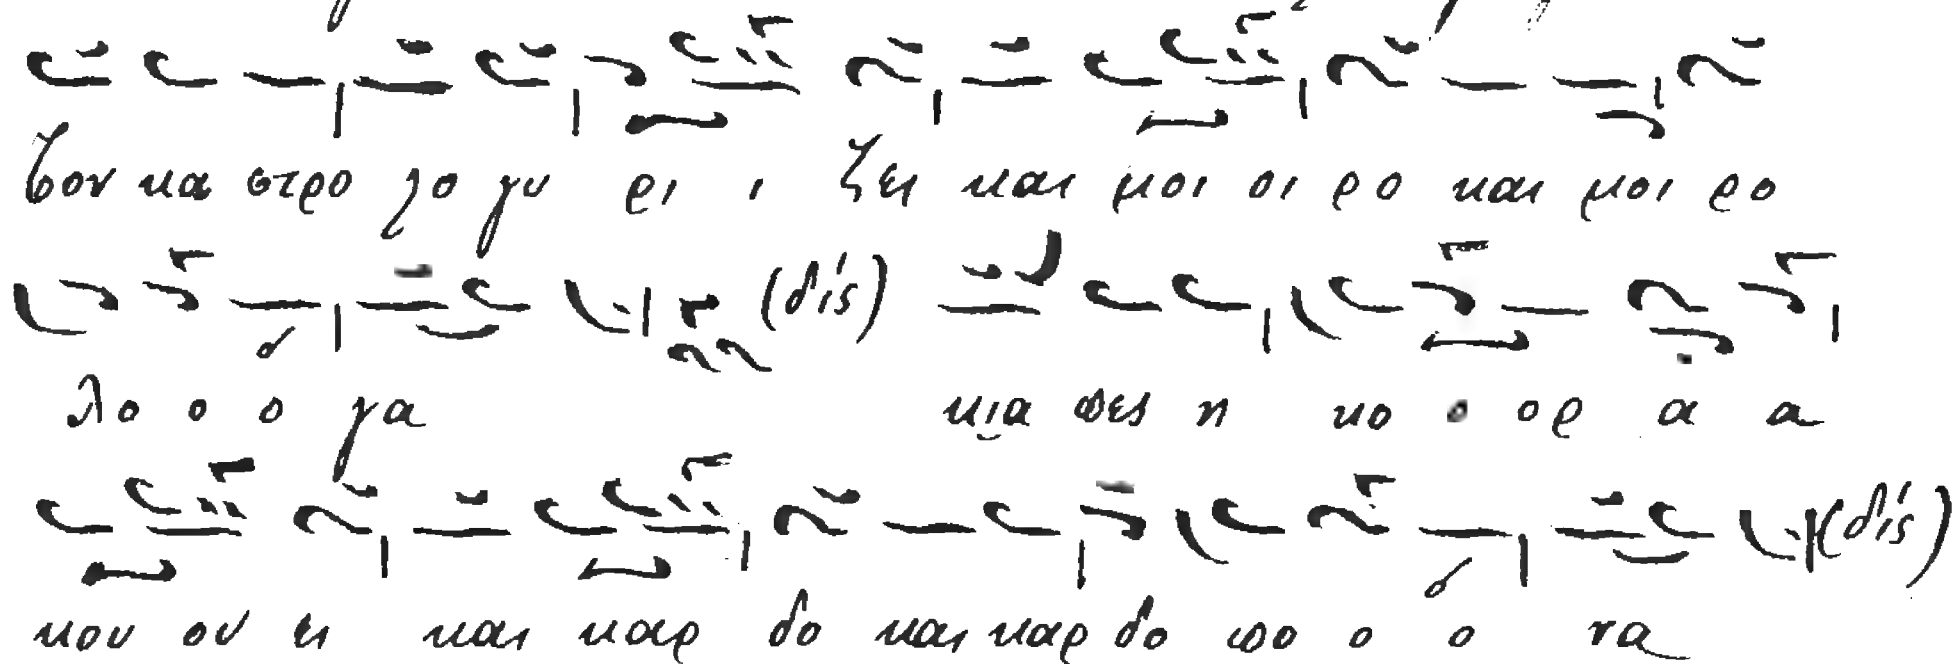 βον κα στρο λο γυ ρι ι ζει και μοι οι ρο και μοι ρο
λο ο ο γα (δίς) κια φες η κο ο ορ α α
κου ου ει και καρ δο και καρ δο φο ο ο ρα (δίς)